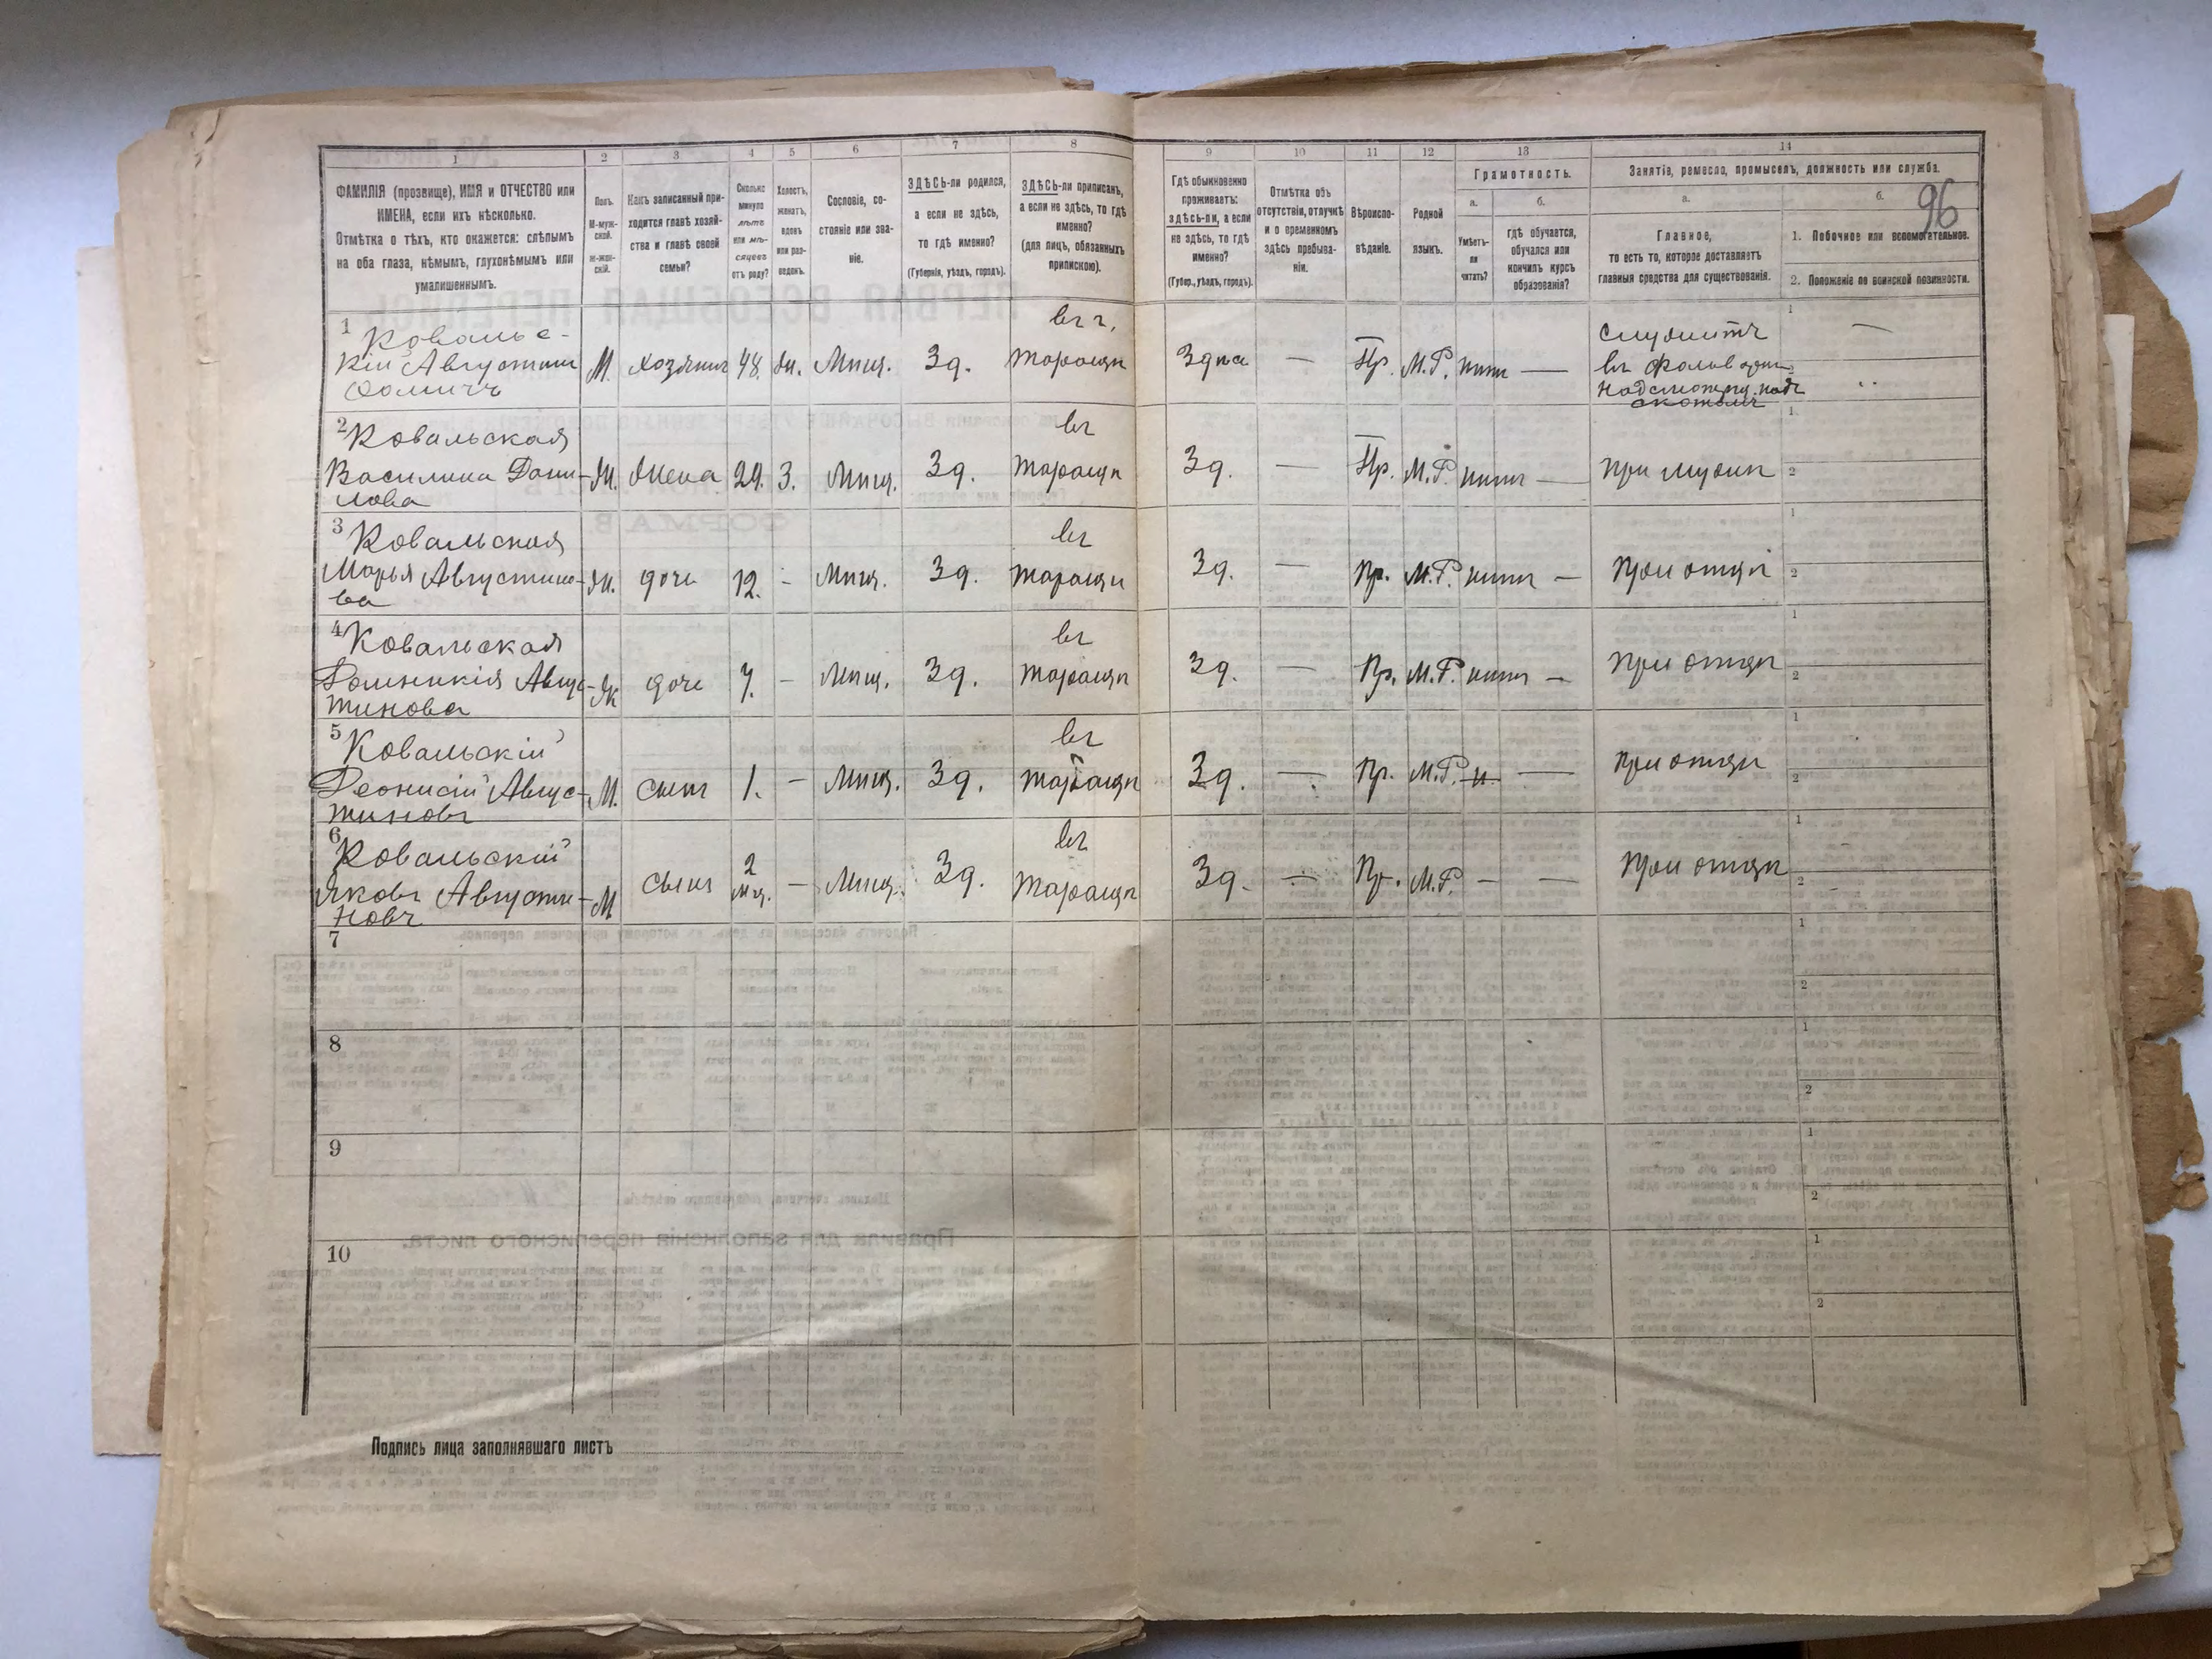 1
2
3
4
5
6
7
8
9
10
11
12
13
14
ФАМИЛІЯ (прозвище), ИМЯ и ОТЧЕСТВО или
ИМЕНА, если ихъ нѣсколько.
Отмѣтка о тѣхъ, кто окажется: слѣпымъ
на оба глаза, нѣмымъ, глухонѣмымъ или
умалишеннымъ.
Полъ.
М-муж-
ской.
Ж-жен-
скій.
Какъ записанный при-
ходится главѣ хозяй-
ства и главѣ своей
семьи?
Сколько
минуло
лѣтъ
или мѣ-
сяцевъ
отъ роду?
Холостъ,
женатъ,
вдовъ
или раз-
веденъ.
Сословіе, со-
стояніе или зва-
ніе.
ЗДѢСЬ-ли родился,
а если не здѣсь,
то гдѣ именно?
(Губернія, уѣздъ, городъ).
ЗДѢСЬ-ли приписанъ,
а если не здѣсь, то гдѣ
именно?
(для лицъ, обязанныхъ
припискою).
Гдѣ обыкновенно
проживаетъ:
здѣсь-ли, а если
не здѣсь, то гдѣ
именно?
(Губер., уѣздъ, городъ).
Отмѣтка объ
отсутствіи, отлучкѣ
и о временномъ
здѣсь пребыва-
ніи.
Вѣроиспо-
вѣданіе.
Родной
языкъ.
Грамотность.
а.
Умѣетъ-
ли
читать?
б.
гдѣ обучается,
обучался или
кончилъ курсъ
образованія?
Занятіе, ремесло, промыселъ, должность или служба.
а.
Главное,
то есть то, которое доставляетъ
главныя средства для существованія.
б.
96
1. Побочное или вспомогательное.
2. Положеніе по воинской повинности.
1 Ковальс-
кій Августинъ
Ѳомичъ
М. хозяинъ 48. жн. Мѣщ. Зд. въ г.
Таращѣ
Здѣсь — Пр. М.Р. нѣтъ —
служитъ
въ фольварк
надсмотрщ. надъ
скотомъ
1 —
2
2 Ковальская
Василина Дани-
лова
Ж. жена 29. З. Мѣщ. Зд. въ
Таращѣ
Зд. — Пр. М.Р. нѣтъ — при мужѣ
1
2
3 Ковальская
Марья Августино-
ва
Ж. дочь 12. - Мѣщ. Зд. въ
Таращѣ
Зд. — Пр. М.Р. нѣтъ — при отцѣ
1
2
4 Ковальская
Домникія Авгус-
тинова
Ж дочь 7. - Мѣщ. Зд. въ
Таращѣ
Зд. — Пр. М.Р. нѣтъ — при отцѣ
1
2
5 Ковальскій
Деонисій Авгус-
тиновъ
М. сынъ 1. - Мѣщ. Зд. въ
Таращѣ
Зд. — Пр. М.Р. н. — при отцѣ
1
2
6 Ковальскій
Яковъ Августи-
новъ
М сынъ 2
мц. - Мѣщ. Зд. въ
Таращѣ
Зд. — Пр. М.Р. — — при отцѣ
1
2
7
1
2
8
1
2
9
1
2
10
1
2
Подпись лица заполнявшаго листъ